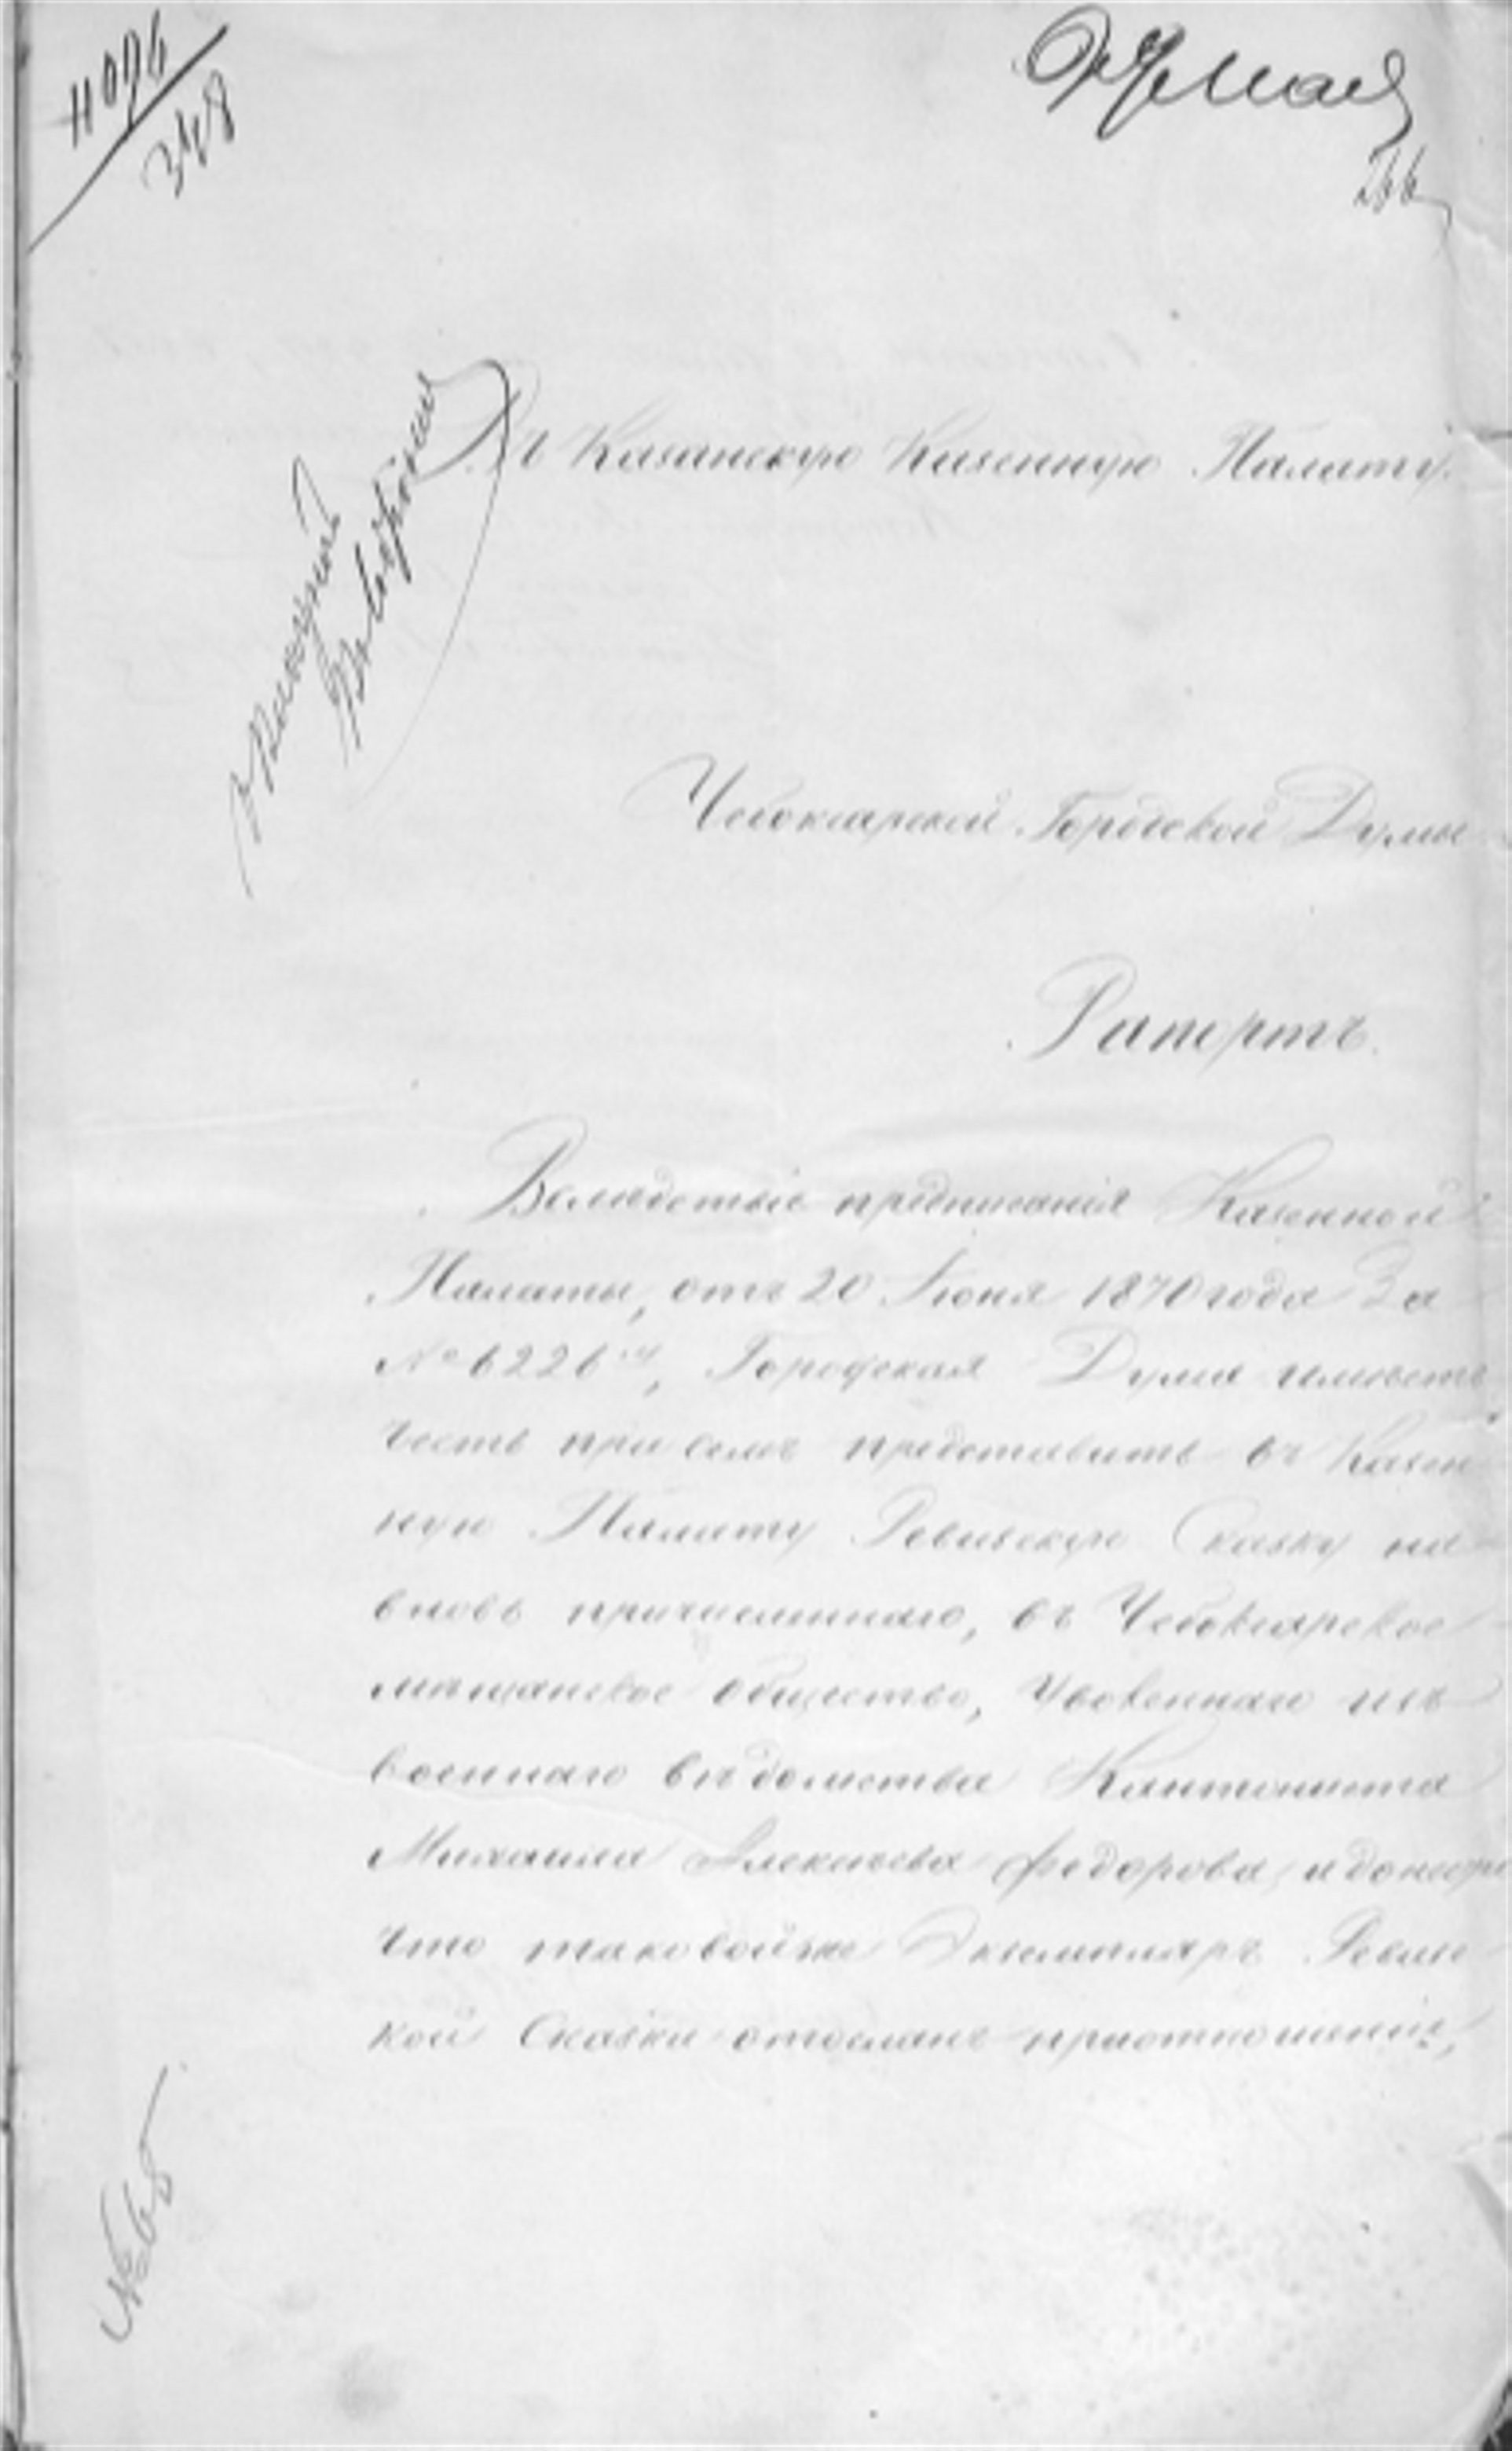 11096
348
266
Въ Казанскую Казенную Палату.
Чебоксарской Городской Думы
Рапортъ.
Вследствіе предписанія Казенной
Палаты, отъ 20 Іюня 1870 года За
№ 6226, Городская Дума имѣетъ
честь при семъ представить въ Казен
ную Палату Ревизскую Сказку на
вновь причисленнаго, въ Чебоксарское
мѣщанское общество, Уволеннаго изъ
военнаго вѣдомства Кантониста
Михаила Алексѣева Федорова, и
что таковойже Экземпляръ Ревиз
кой Сказки отосланъ приотношеніи,